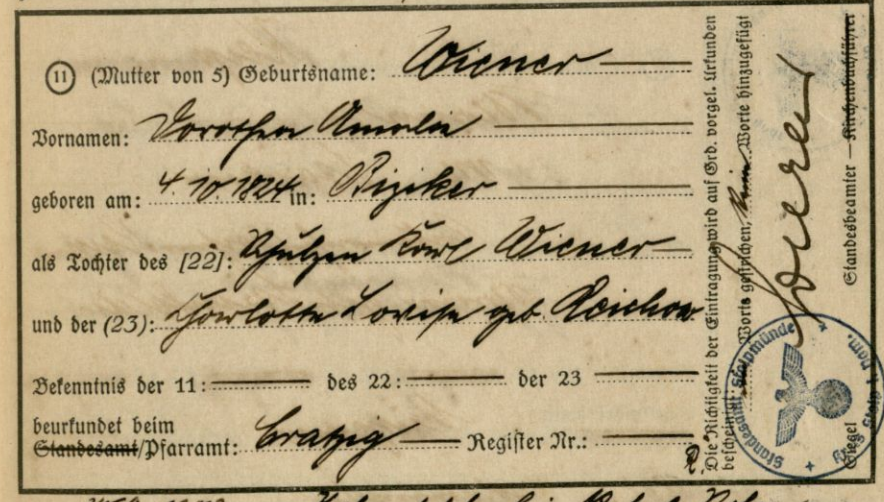 11 (Mutter von 5) Geburtsname: Wiener
Vornamen: Dorothea Amalie
geboren am: 4.10.1824 in: Biziker
als Tochter des [22]: Schulzen Karl Wiener
und der (23): Charlotte Louise geb. Reichow
Bekenntnis der 11: des 22: der 23
beurkundet beim
Standesamt/Pfarramt: Cratzig Register Nr.:
Die Richtigkeit der Eintragung wird auf Grd. vorgel. Urkunden
bescheinigt. Worte gestrichen, Kein Worte hinzugefügt
Standesbeamter — Kirchenbuchführer
Siegel
Standesamt Stolpmünde
Kreis Stolp i. Pom.